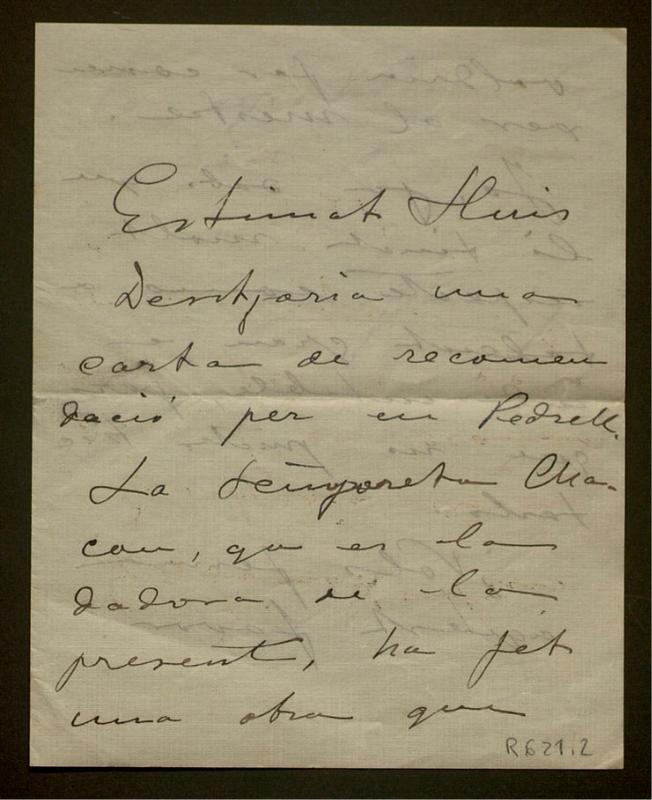 Estimat Lluis
Desitjaria una
carta de recomen
dació per en Pedrell.
La señyoreta Cha-
con, que es la
dadora de la
present, ha fet
una obra que
R.621.2